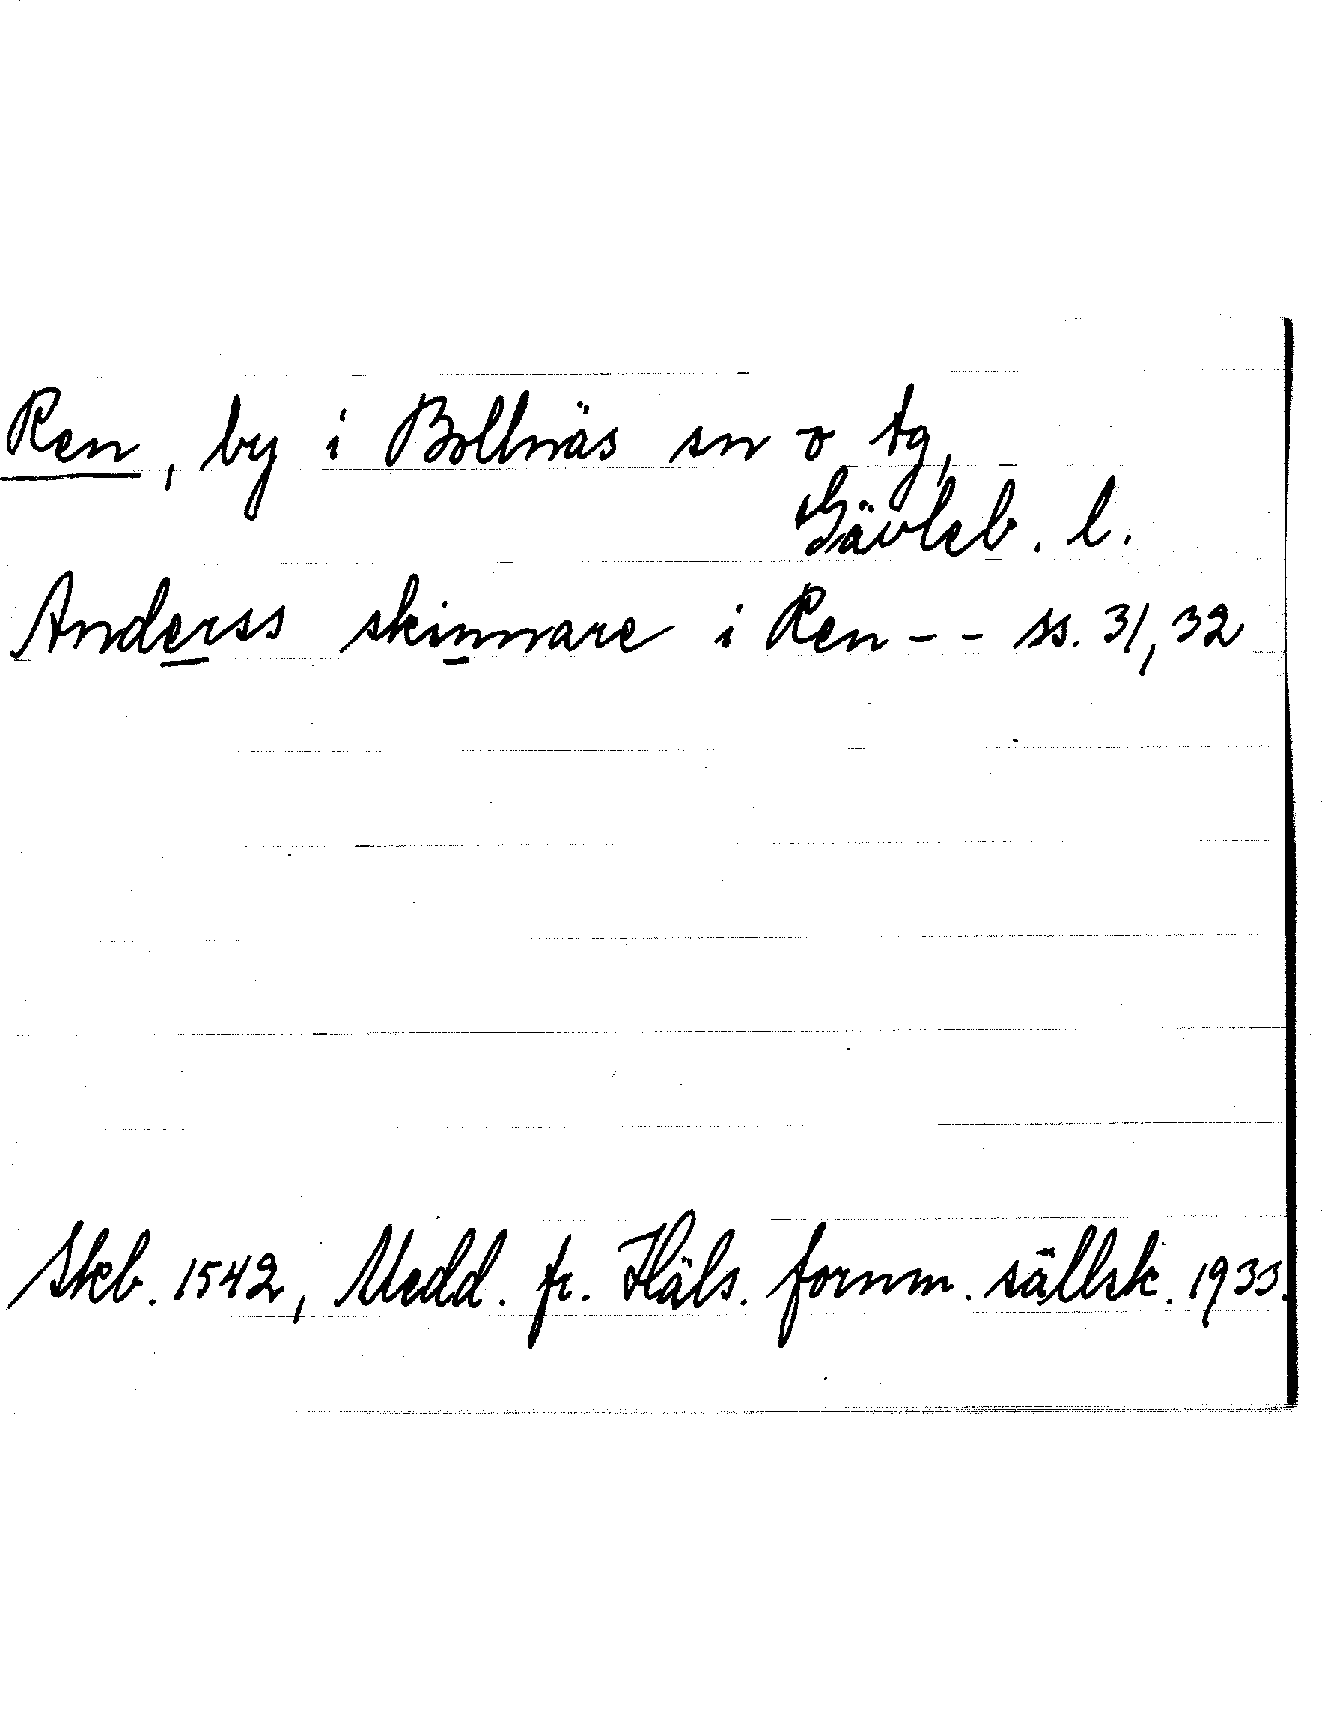 Ren, by i Bollnäs sn o tg,
Gävleb. l.
Anderss skinnare i Ren - - ss. 31, 32
Skb. 1542, Medd. fr. Häls. fornm. sällsk. 1933.